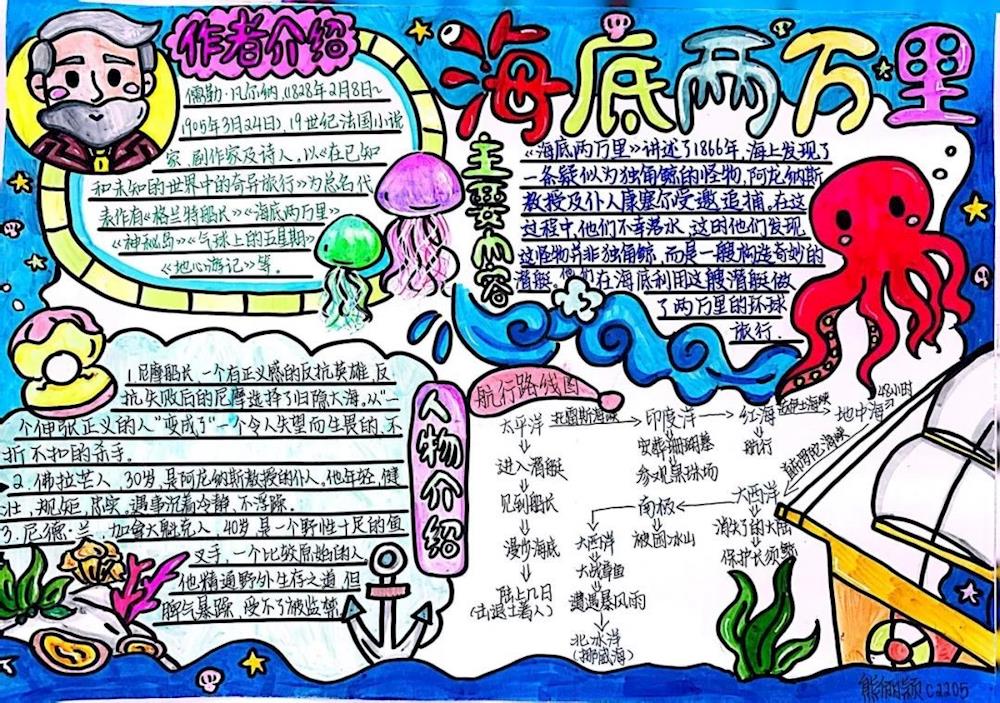 作者介绍
儒勒·凡尔纳，(1828年2月8日~
1905年3月24日)，19世纪法国小说
家、剧作家及诗人。以《在已知
和未知的世界中的奇异旅行》为总名代
表作有《格兰特船长》《海底两万里》
《神秘岛》《气球上的五星期》
《地心游记》等。
海底两万里
主要内容
《海底两万里》讲述了1866年，海上发现了
一条疑似为独角鲸的怪物，阿龙纳斯
教授及仆人康塞尔受邀追捕，在这
过程中，他们不幸落水，这时他们发现
这怪物并非独角鲸，而是一艘构造奇妙的
潜艇。他们在海底利用这艘潜艇做
了两万里的环球
旅行.
1.尼摩船长，一个有正义感的反抗英雄，反
抗失败后的尼摩选择了归隐大海，从"一
个伸张正义的人"变成了"一个令人失望而生畏的，不
折不扣的杀手。
2.佛拉芒人，30岁，是阿龙纳斯教授的仆人，他年轻，健
壮，规矩，忠实，遇事沉着冷静，不浮躁。
3.尼德·兰，加拿大魁克人，40岁，是一个野性十足的值
叉手，一个比较原始的人
他精通野外生存之道，但
脾气暴躁，受不了被监禁
人物介绍
航行路线图
太平洋
进入潜艇
见到船长
漫步海底
陆上几日
(击退土著人)
托里斯海峡
印度洋
安葬珊瑚墓
参观采珠场
红海
航行
地中海
48小时
大西洋
消失了的大陆
保护长须鲸
南极
被困冰山
大西洋
大战章鱼
遭遇暴风雨
北冰洋
(挪威海)
C2205